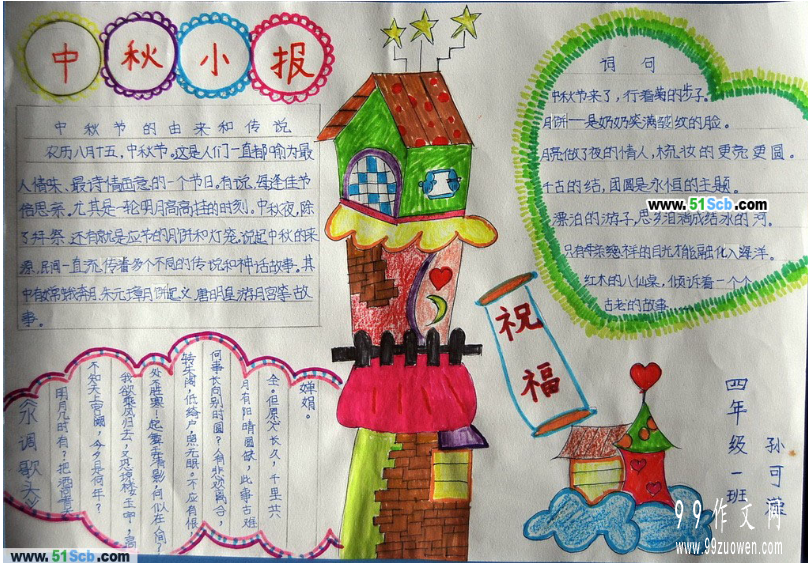 中秋小报
中秋节的由来和传说
农历八月十五，中秋节。这是人们一直都喻为最
人情味、最诗情画意的一个节日。有说，每逢佳节
倍思亲。尤其是一轮明月高高挂的时刻。中秋夜，除
了拜祭，还有就是应节的月饼和灯笼。说起中秋的来
源，民间一直流传着多个不同的传说和神话故事。其
中有嫦娥奔月、朱元璋月饼起义、唐明皇游月宫等故
事。
词句
中秋节来了，行着菊的步子。
月饼——是奶奶笑满皱纹的脸。
月亮做了夜的情人，梳妆的更亮更圆。
千古的结，团圆是永恒的主题。
漂泊的游子，思乡泪滴成结冰的河。
只有母亲慈祥的目光才能融化入海洋。
红木的八仙桌，倾诉着一个个
古老的故事
祝福
水调歌头
明月几时有？把酒问青天
不知天上宫阙，今夕是何年？
我欲乘风归去，又恐琼楼玉宇，高
处不胜寒！起舞弄清影，何似在人间？
转朱阁，低绮户，照无眠。不应有恨
何事长向别时圆？人有悲欢离合，
月有阴晴圆缺，此事古难
全。但愿人长久，千里共
婵娟。
四年级一班
孙可
www.51Scb.com
www.51Scb.com
www.51Scb.com
99作文网
www.99zuowen.com